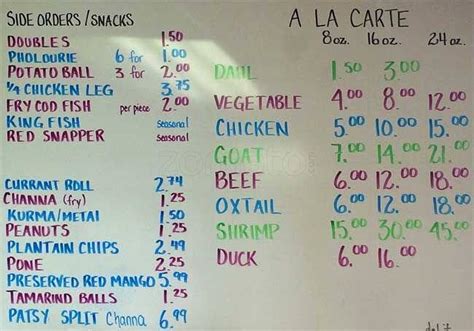 SIDE ORDERS / SNACKS
DOUBLES 1.50
PHOLOURIE 6 for 1.00
POTATO BALL 3 for 2.00
1/4 CHICKEN LEG 3.75
FRY COD FISH per piece 2.00
KING FISH seasonal
RED SNAPPER seasonal
CURRANT ROLL 2.74
CHANNA (fry) 1.25
KURMA/METAI 1.50
PEANUTS 1.25
PLANTAIN CHIPS 2.49
PONE 2.25
PRESERVED RED MANGO 5.99
TAMARIND BALLS 1.25
PATSY SPLIT Channa 6.99
A LA CARTE
8oz. 16oz. 24oz.
DAHL 1.50 3.00
VEGETABLE 4.00 8.00 12.00
CHICKEN 5.00 10.00 15.00
GOAT 7.00 14.00 21.00
BEEF 6.00 12.00 18.00
OXTAIL 6.00 12.00 18.00
SHRIMP 15.00 30.00 45.00
DUCK 6.00 16.00